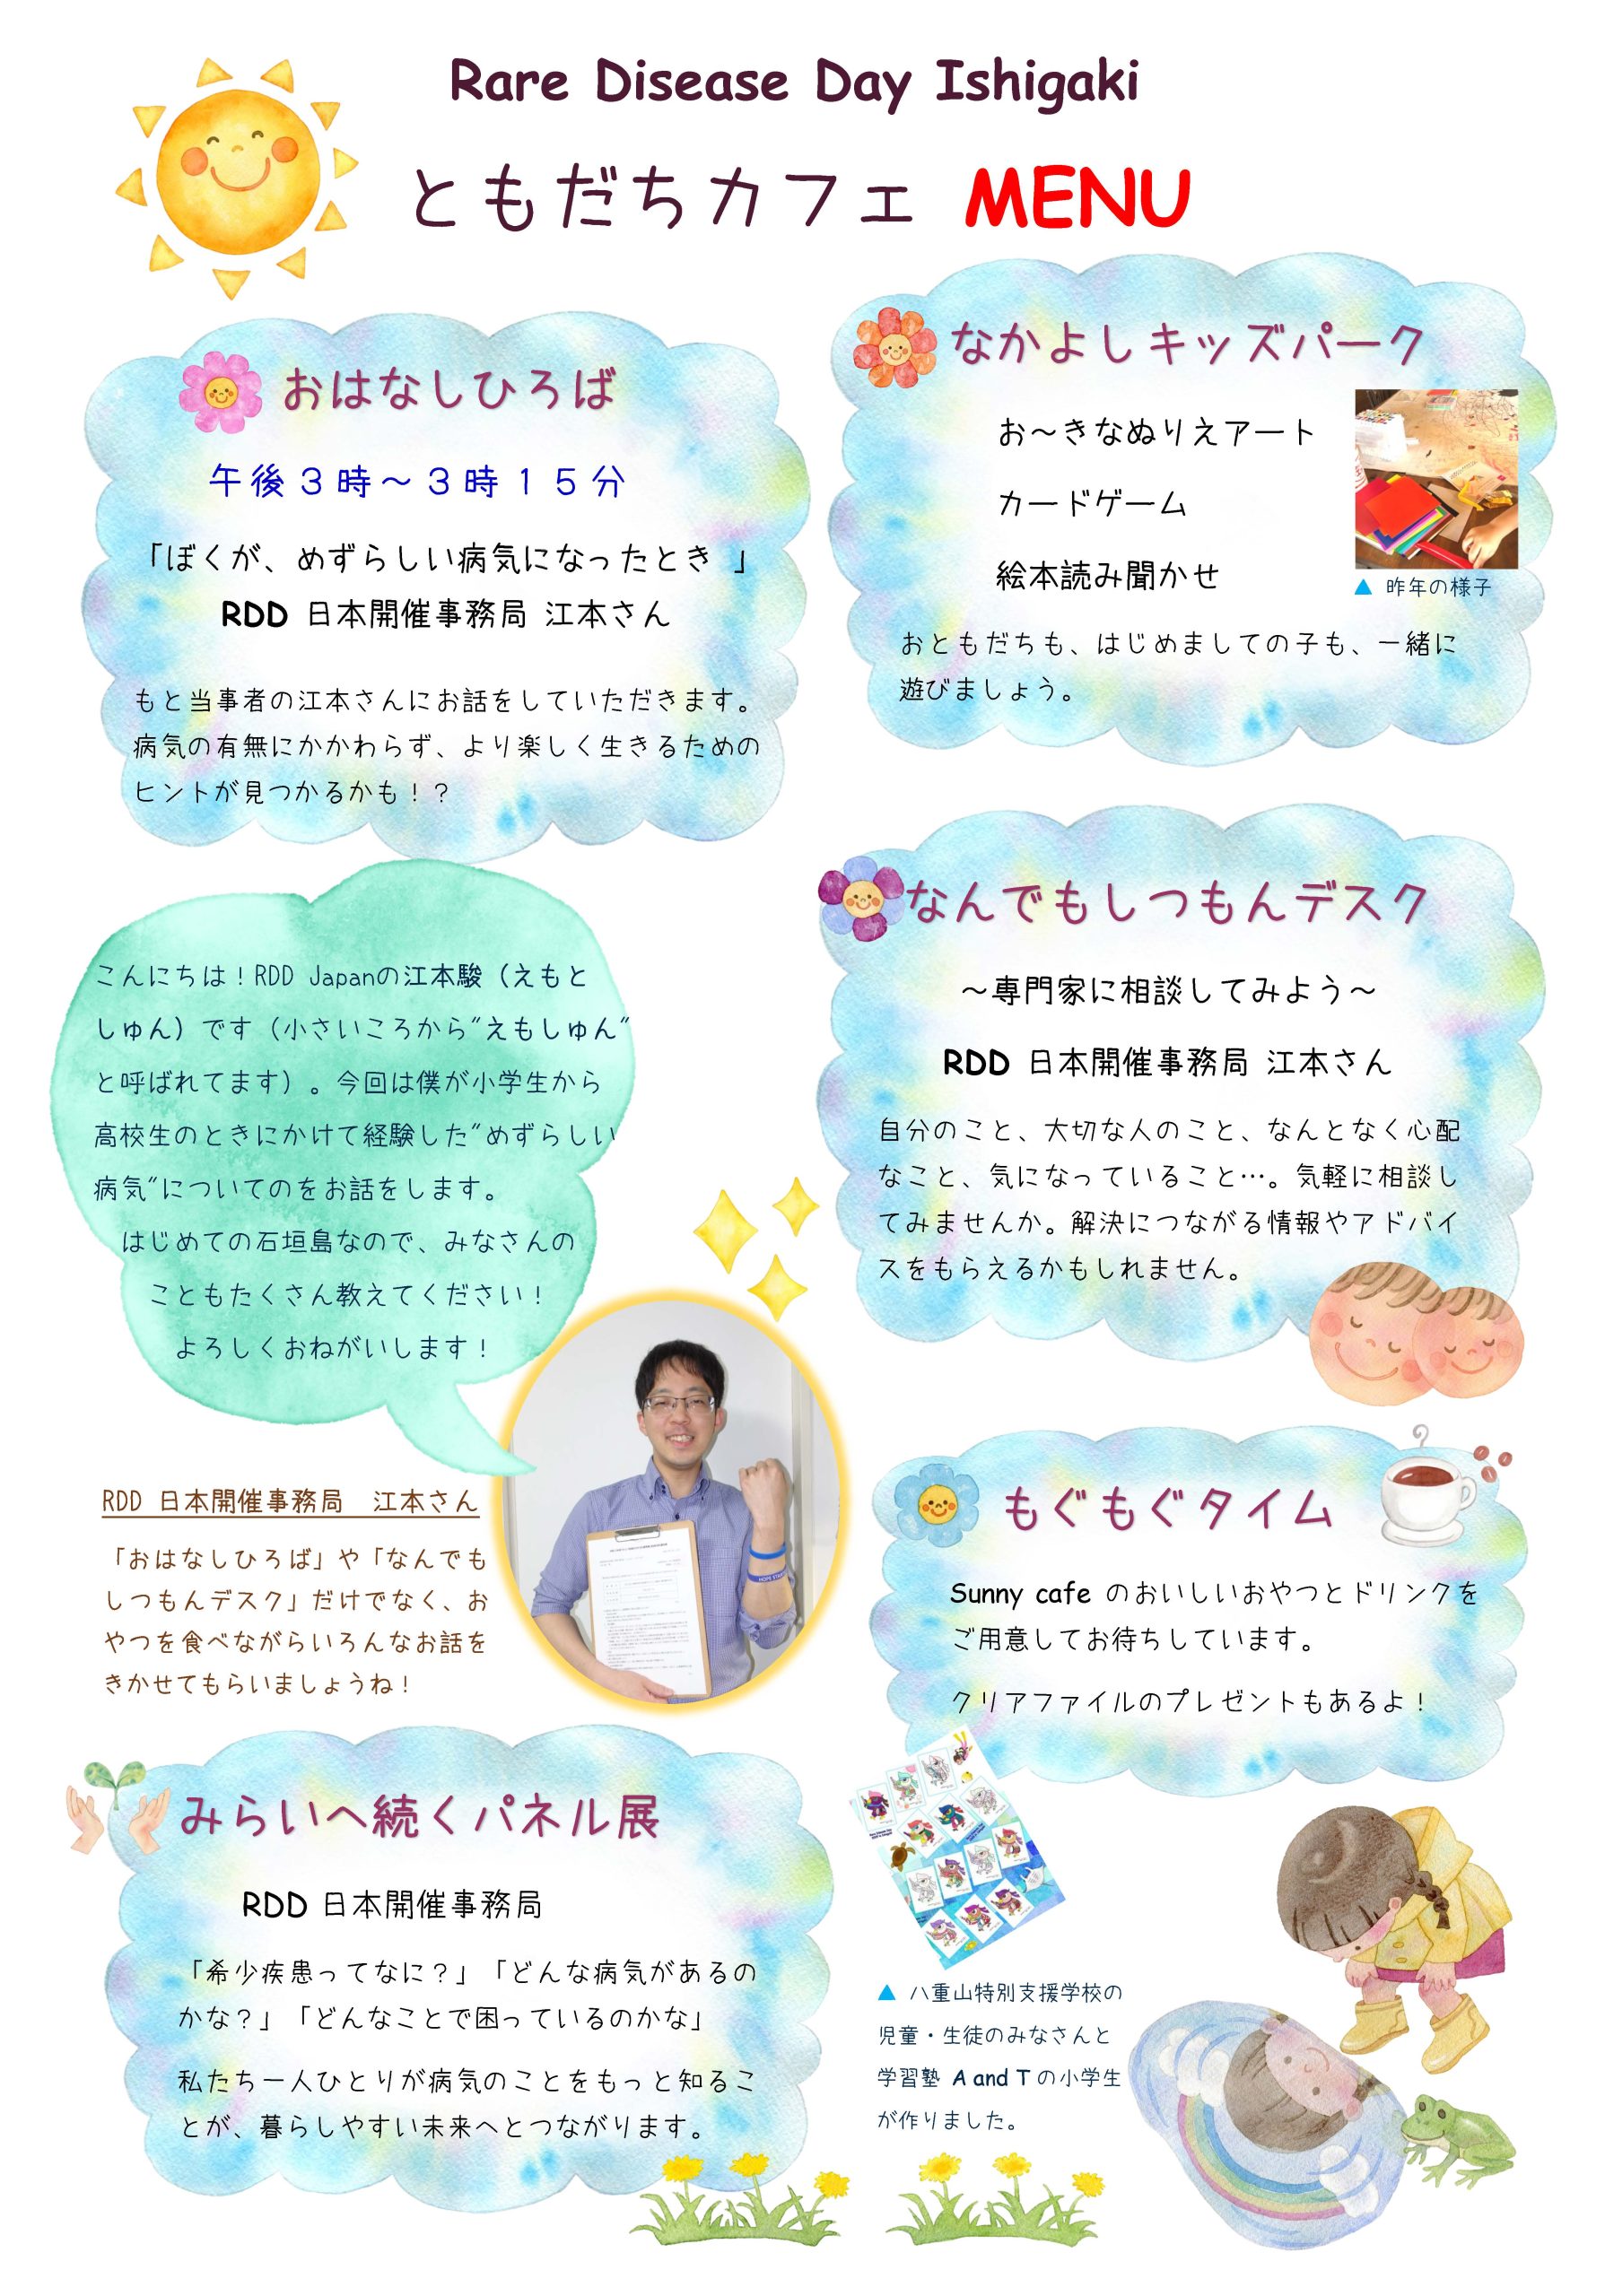 Rare Disease Day Ishigaki
ともだちカフェ MENU
おはなしひろば
午後３時～３時１５分
「ぼくが、めずらしい病気になったとき 」
RDD 日本開催事務局 江本さん
もと当事者の江本さんにお話をしていただきます。
病気の有無にかかわらず、より楽しく生きるための
ヒントが見つかるかも！？
なかよしキッズパーク
お～きなぬりえアート
カードゲーム
絵本読み聞かせ
▲ 昨年の様子
おともだちも、はじめましての子も、一緒に
遊びましょう。
こんにちは！RDD Japanの江本駿（えもと
しゅん）です（小さいころから"えもしゅん"
と呼ばれてます）。今回は僕が小学生から
高校生のときにかけて経験した"めずらしい
病気"についてのをお話をします。
はじめての石垣島なので、みなさんの
こともたくさん教えてください！
よろしくおねがいします！
なんでもしつもんデスク
～専門家に相談してみよう～
RDD 日本開催事務局 江本さん
自分のこと、大切な人のこと、なんとなく心配
なこと、気になっていること…。気軽に相談し
てみませんか。解決につながる情報やアドバイ
スをもらえるかもしれません。
RDD 日本開催事務局　江本さん
「おはなしひろば」や「なんでも
しつもんデスク」だけでなく、お
やつを食べながらいろんなお話を
きかせてもらいましょうね！
もぐもぐタイム
Sunny cafe のおいしいおやつとドリンクを
ご用意してお待ちしています。
クリアファイルのプレゼントもあるよ！
みらいへ続くパネル展
RDD 日本開催事務局
「希少疾患ってなに？」「どんな病気があるの
かな？」「どんなことで困っているのかな」
私たち一人ひとりが病気のことをもっと知るこ
とが、暮らしやすい未来へとつながります。
▲ 八重山特別支援学校の
児童・生徒のみなさんと
学習塾 A and T の小学生
が作りました。